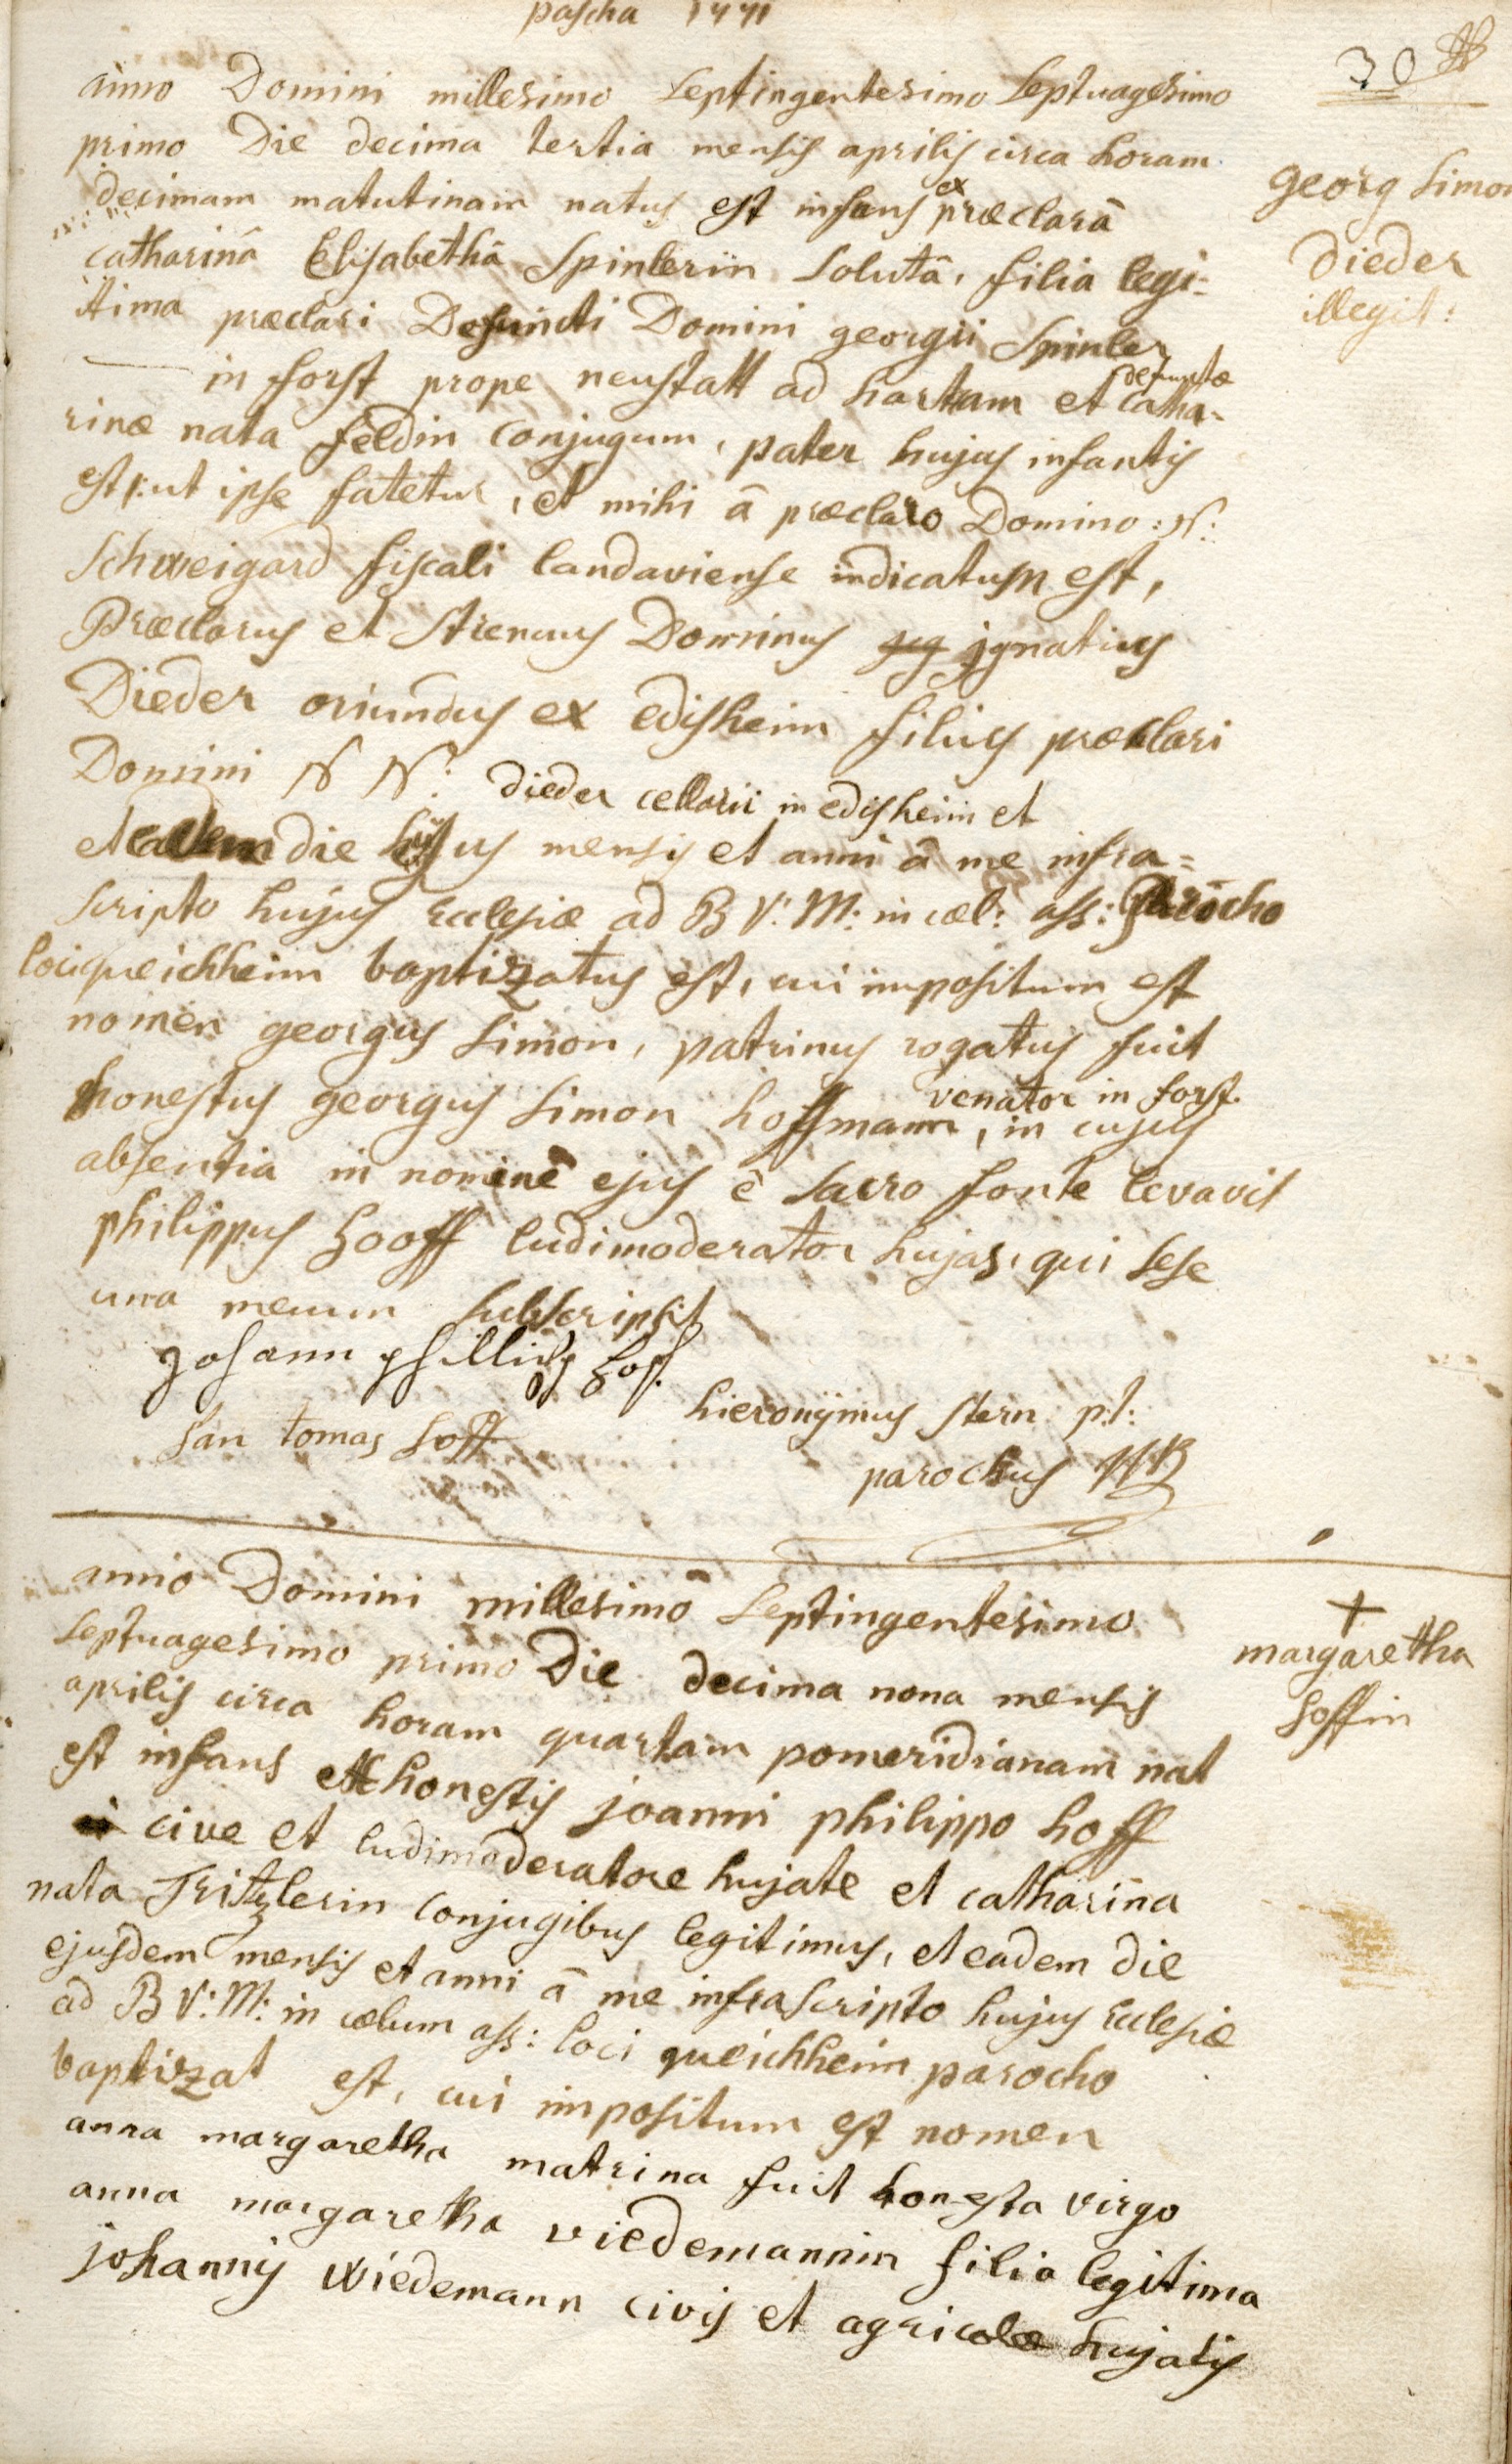 pascha 1771
30
anno Domini millesimo septingentesimo septuagesimo
primo Die decima tertia mensis aprilis circa horam
decimam matutinam natus est infans ex præclarâ
catharinâ Elisabethâ Spinlerin solutâ, filia legi-
tima præclari Defuncti Domini georgii Spinler
in forst prope neustatt ad hartam et defunctæ catha-
rinæ nata feldin conjugum, pater hujus infantis
est |: ut ipse fatetur, et mihi â præclaro Domino: N:
Schweigard fiscali landaviense indicatum est,
Præclarus et strenuus Dominus ignatius
Dieder oriundus ex edisheim filius præclari
Domini N N: dieder cellarii in edisheim et
et eadem die hujus mensis et anni â me infra=
scripto hujus Ecclesiæ ad B V: M: in cœl: ass: Parocho
loci queichheim baptizatus est, cui impositum est
nomen georgus simon, patrinus rogatus fuit
honestus georgus simon hoffmann, venator in forst. in cujus
absentia in nomine ejus è sacro fonte levavit
philippus hooff ludimoderator hujas, qui sese
una mecum subscripsit
Johann phillips hof.
san tomas hoff
hieronÿmus stern p:t:
parochus
georg simon
Dieder
illegit:
anno Domini millesimo septingentesimo
septuagesimo primo Die decima nona mensis
aprilis circa horam quartam pomeridianam nat
est infans ex honestis joanni philippo hoff
cive et ludimoderatore hujate et catharina
nata Tritzlerin conjugibus legitimus, et eadem die
ejusdem mensis et anni â me infrascripto hujus Ecclesiæ
ad B V: M: in cœlum ass: loci queichheim parocho
baptizat est, cui impositum est nomen
anna margaretha matrina fuit honesta virgo
anna margaretha viedemannin filia legitima
johannis wiedemann civis et agricolæ hujatis
+
margaretha
hoffin